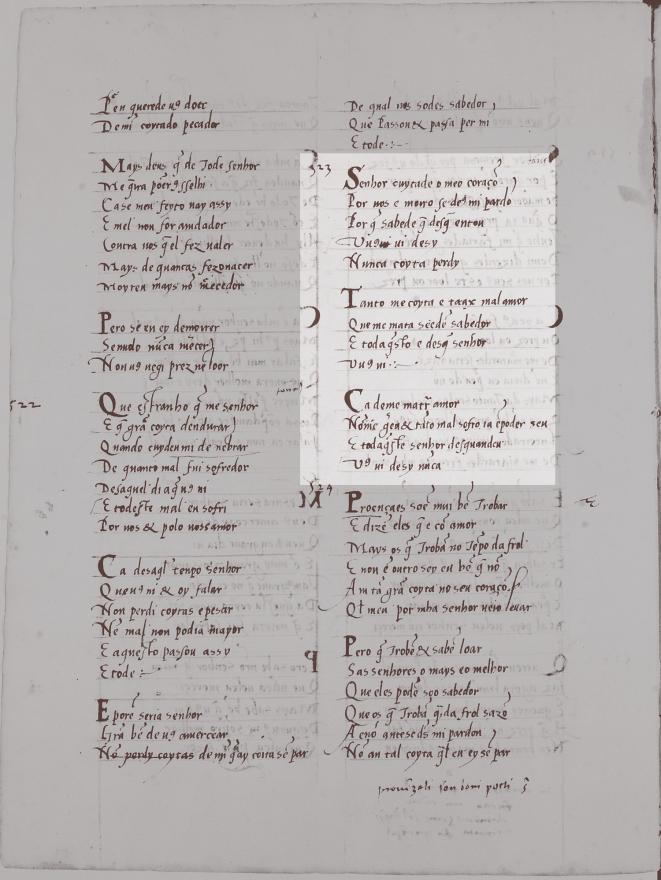 Pen querede uꝯ doer
De mi coytado pecador
Mays deus q̄ de Tode senhor
Me q̄ra poer
Ca se meu feyto uay assy
E mel non for aiudador
Contra uos q̄ el fez ualer
Mays de quantas fez nacer
Moyreu mays nō mecedor
Pero se eu ey de moirer
Sem uolo nūca mēcer
Non uꝯ uegi prez nē loor
522
Que estranho q̄ me senhor
E q̄ grā coyta dendurar
Quando cuydeu mi de nēbrar
De quanto mal fui sofredor
Des aquel dia q̄ uꝯ ui
E todeste mal eu sofri
Por uos & polo uoss amor
Ca desaq̄l tenpo senhor
Que uꝯ ui & oy falar
Non perdi coytas e pesar
Nē mal non podia mayor
E aquesto passou assy
E tode
E por e seria senhor
Grā bē de uꝯ amercear
Nō perdy coytas de mi q̄ ay coita sē par
De qual uos sodes sabedor
Que passou & passa per mi
E tode
523
Senhor cuytado o meo coraçō
Por uos e moiro se deꝯ mi pardō
Por q̄ sabede q̄ des q̄ enton
Vuꝯ ui desy
Nunca coyta perdy
Tanto me coyta e traz mal amor
Que me mata seede sabedor
E tod aq̄sto e des q̄ senhor
Vuꝯ ui
Ca de me matar amor
E tod aq̄ste senhor des quand eu
Vꝯ ui desy nūca
524
Proençaes soē mui bē Trobar
E dizē eles q̄ e cō amor
Mays os q̄ Trobā no Tēpo da frol
E non ē outro sey eu bē q̄ nō
Am tā grā coyta no seu coraçō
Ql̄ meu por mha senhor ueio leuar
Pero q̄ Trobā & sabē loar
Sas senhores o mays e o melhor
Que eles podē sōo sabedor
Que os q̄ Trobā q̄nda frol sazō
A e nō ante se dꝯ mi pardon
Nō an tal coyta ql̄ eu ey sē par